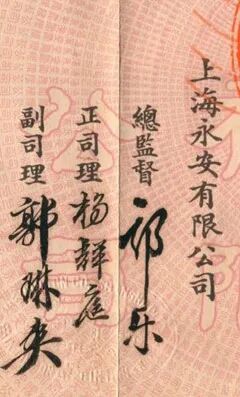 上海永安有限公司
總監督 郭樂
正司理 楊輝庭
副司理 郭琳爽